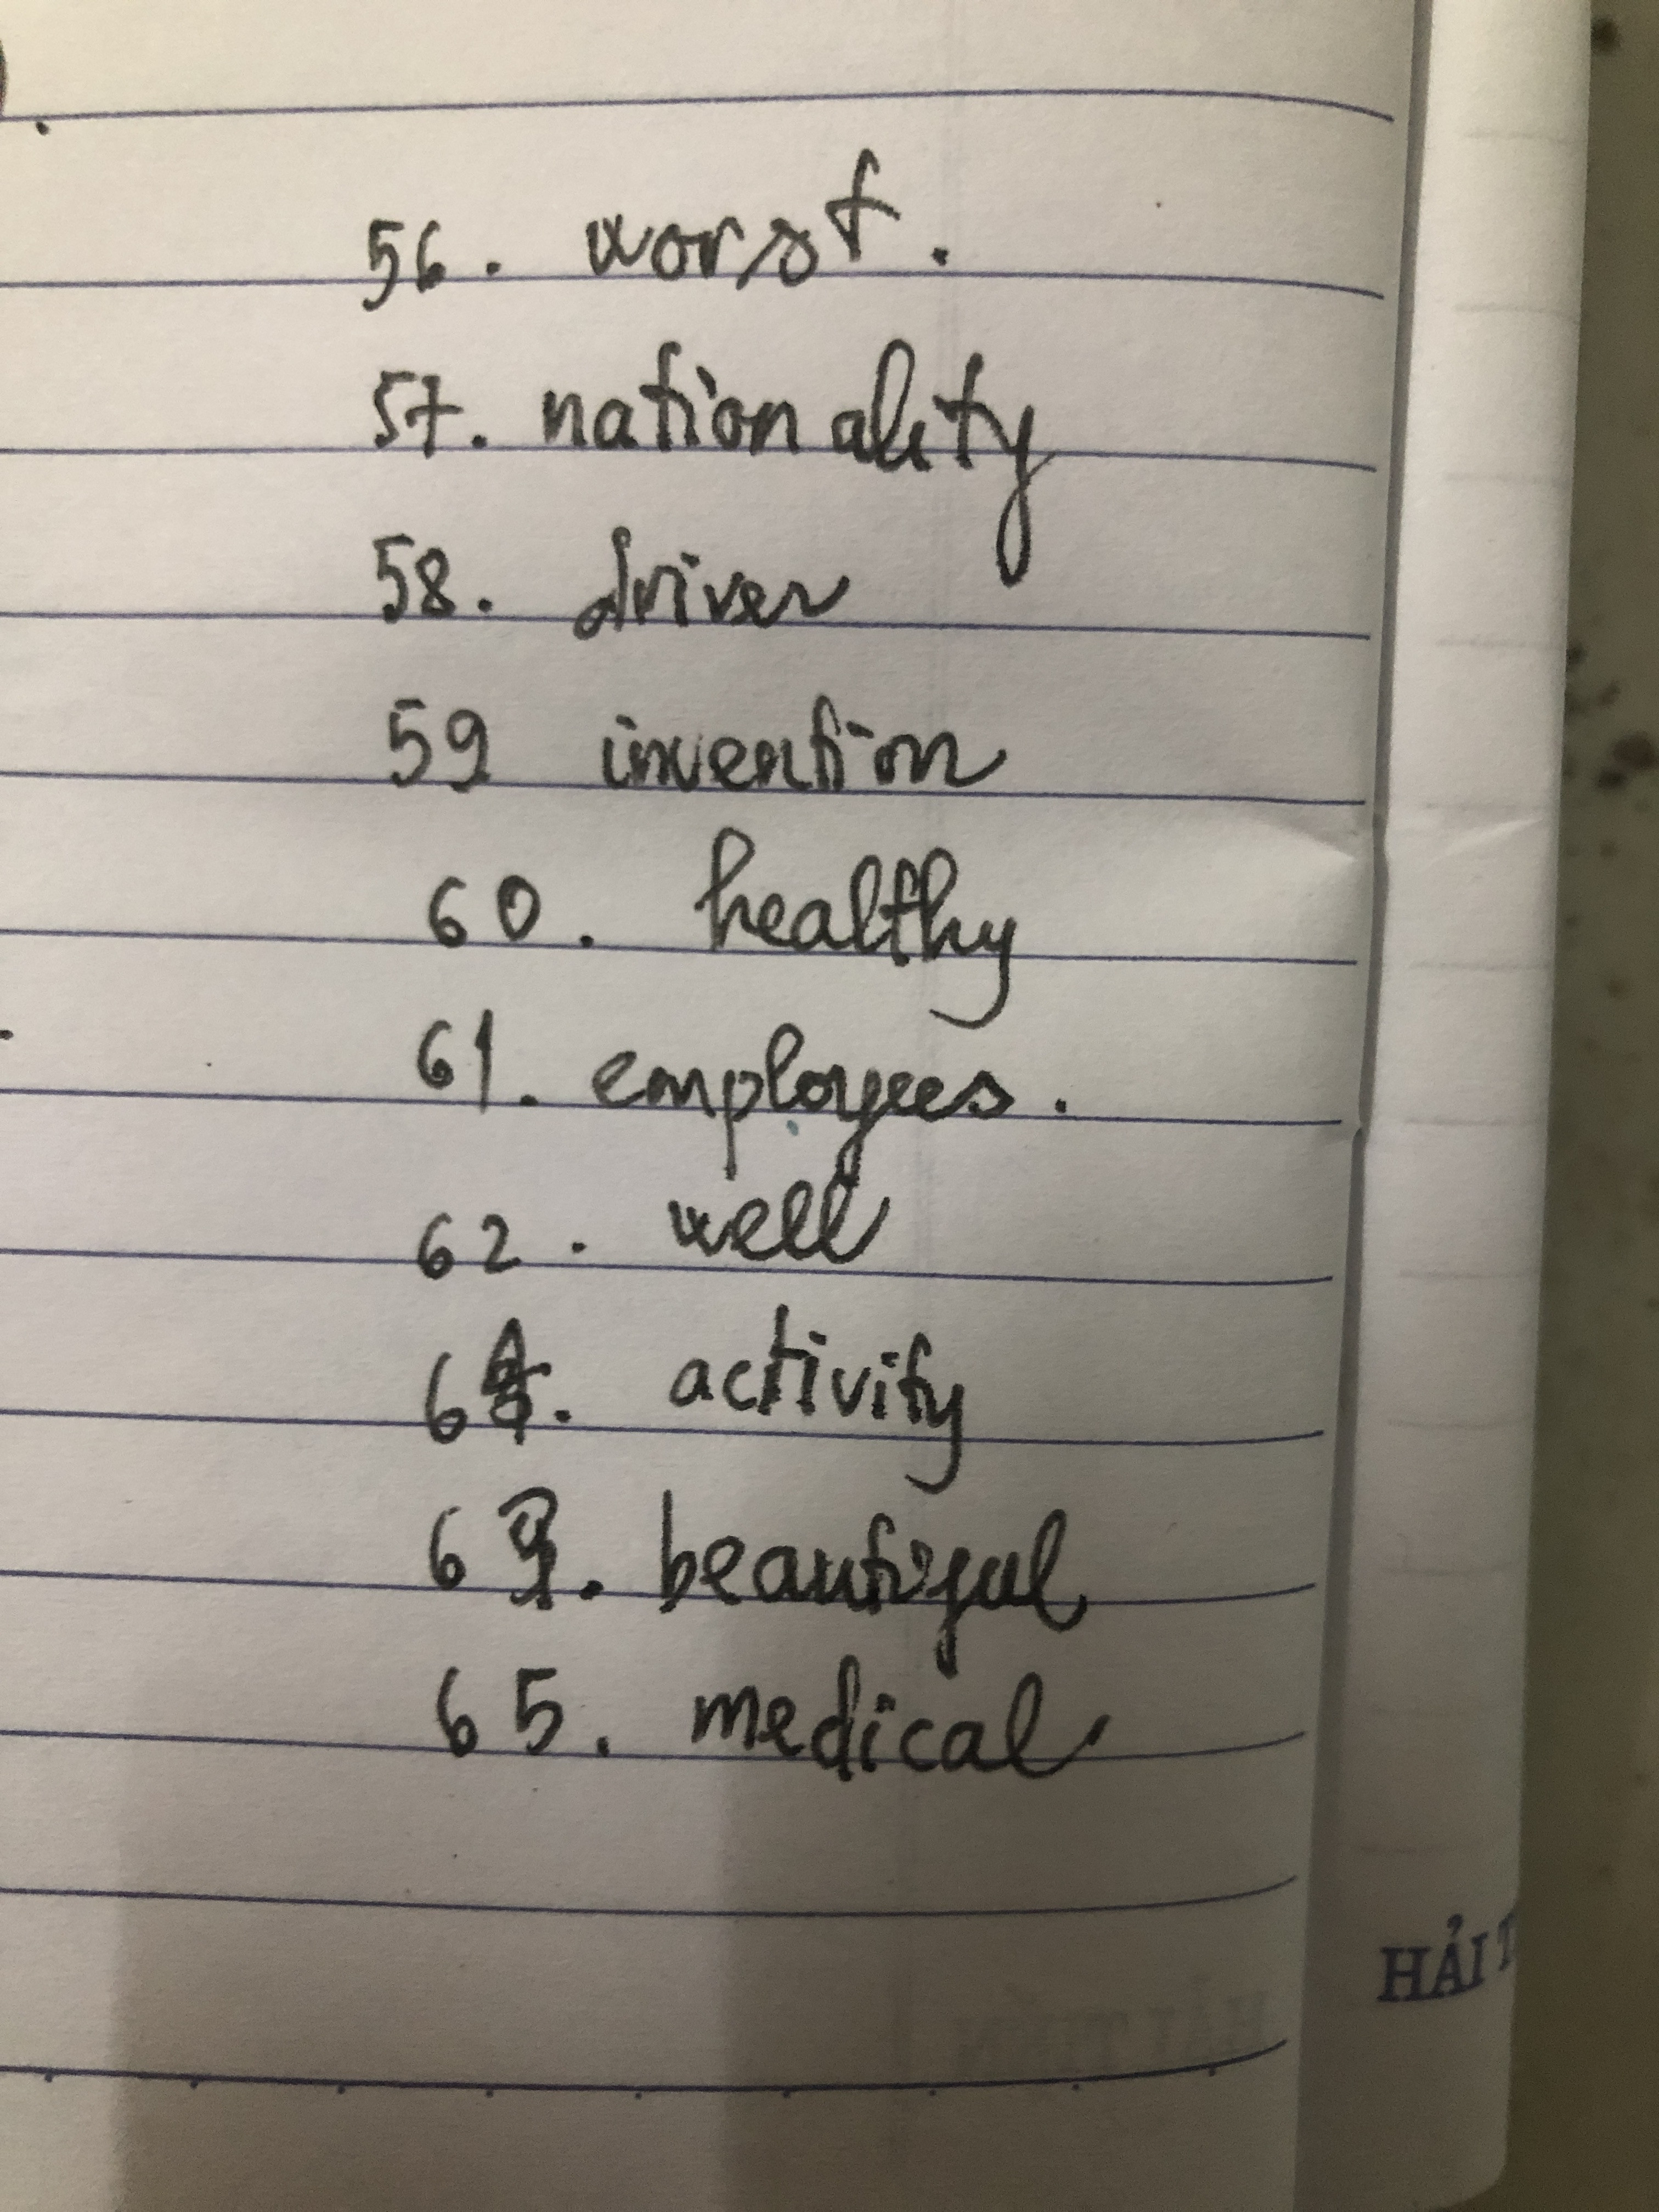 56. worst.
57. nationality
58. driver
59 invention
60. healthy
61. employees.
62. well
64. activity
63. beautiful
65. medical
HẢI T
HẢI TIẾN